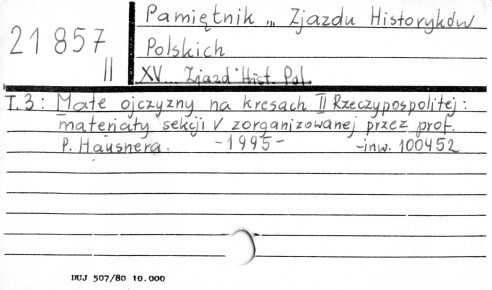 21857
II
Pamiętnik ... Zjazdu Historyków
Polskich
XV... Zjazd Hist. Pol.
T. 3: Małe ojczyzny na kresach II Rzeczypospolitej:
materiały sekcji V zorganizowanej przez prof.
P. Hausnera. -1995- -inw. 100452
DUJ 507/80 10.000